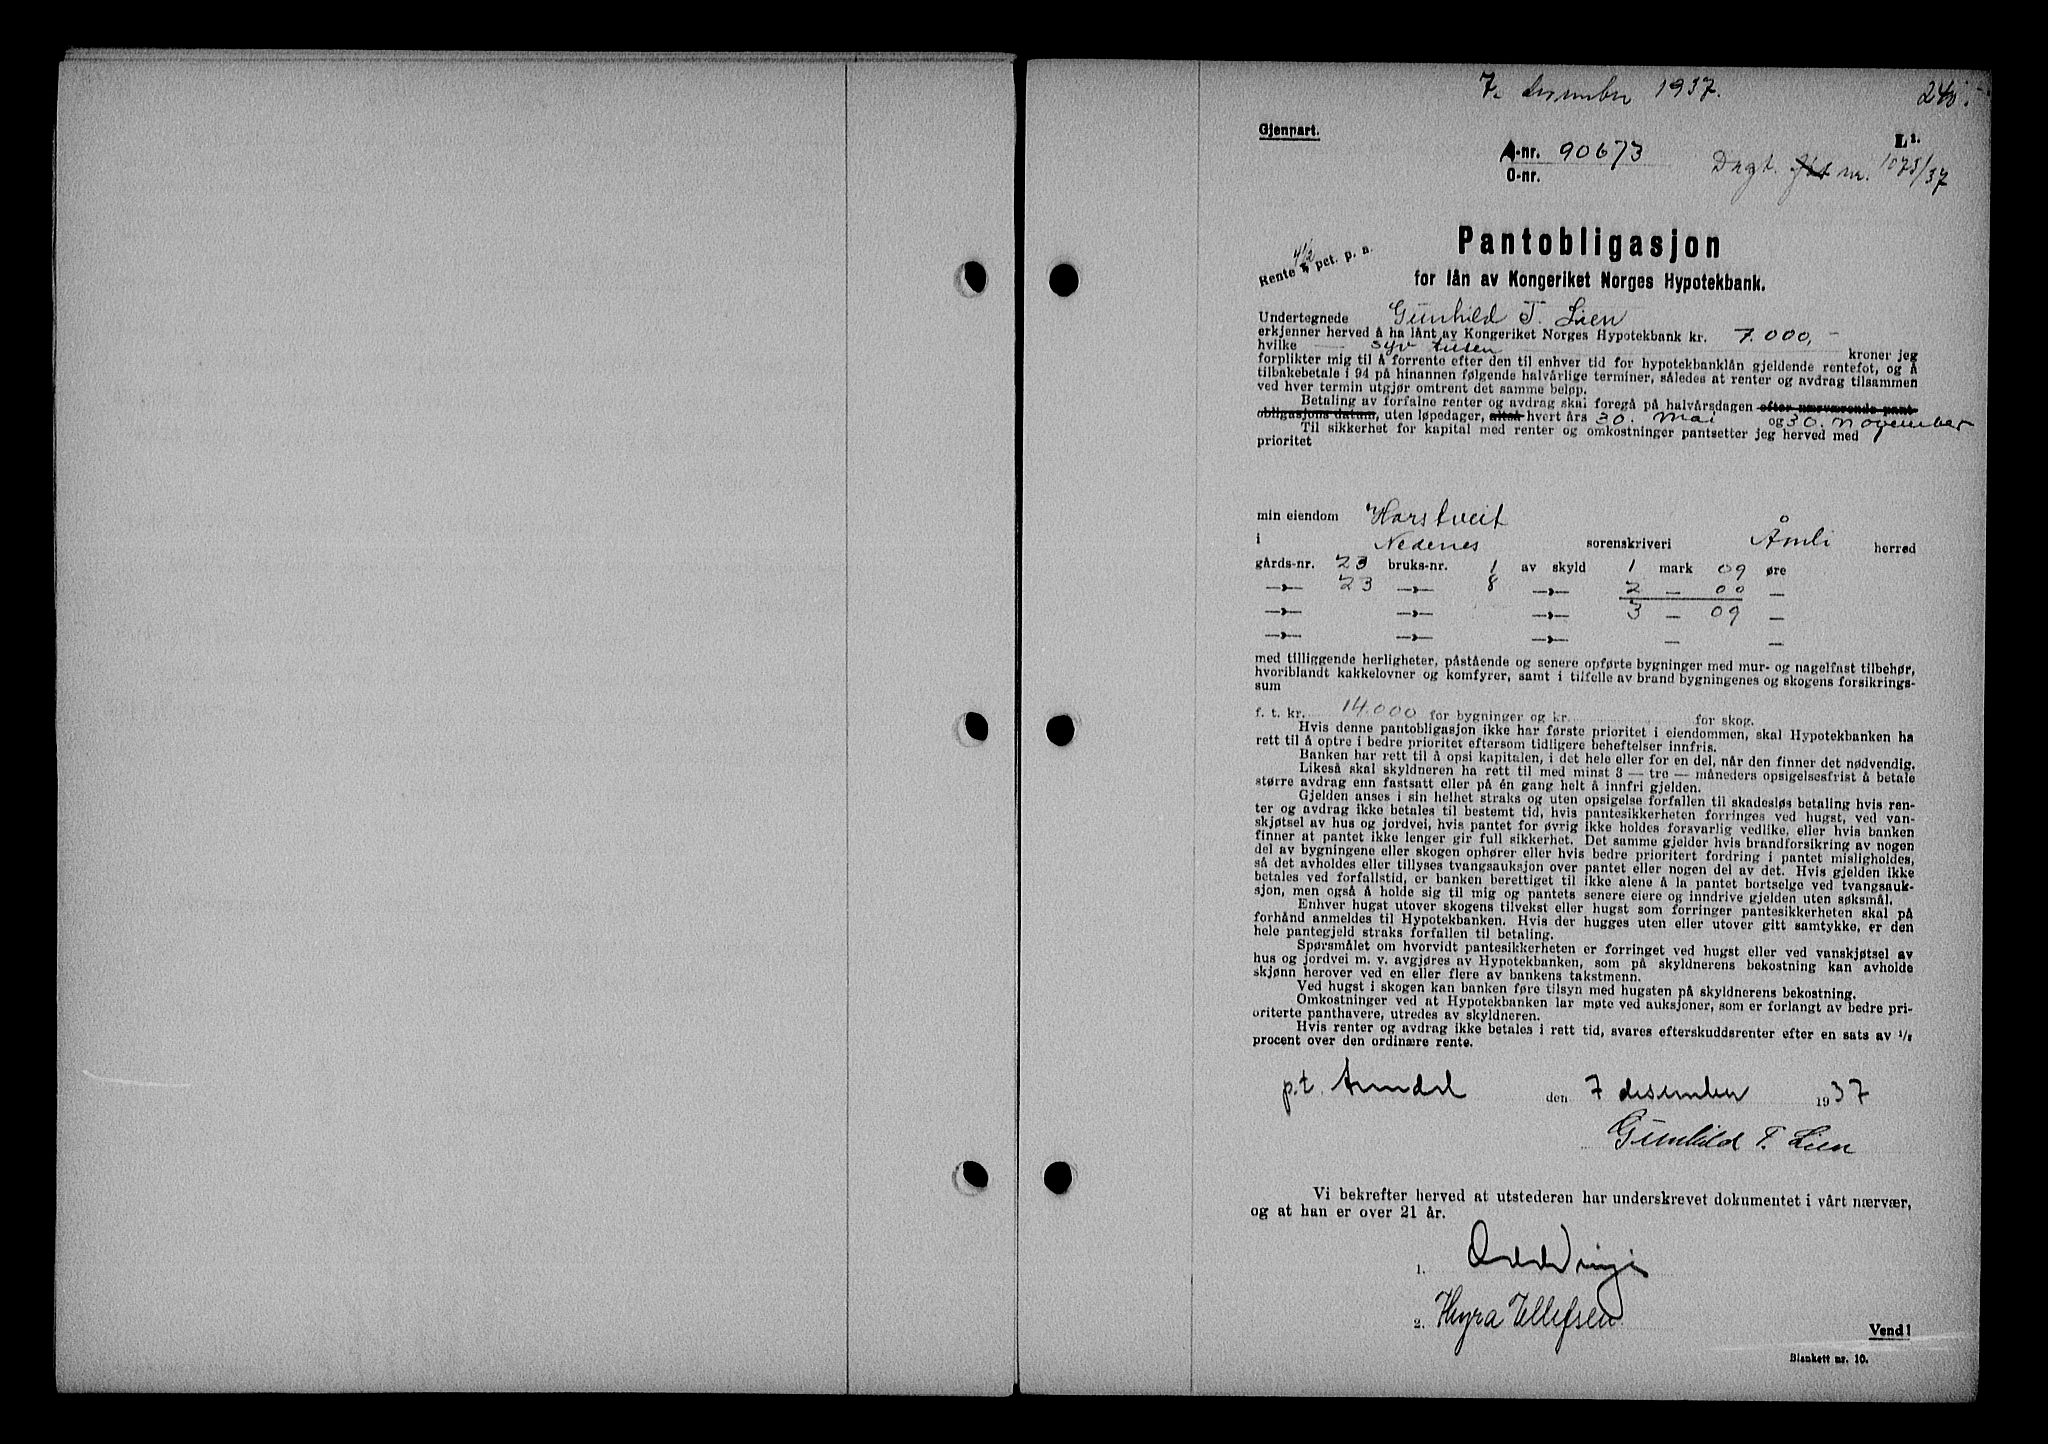 7. desember 1937.
240.
Gjenpart.
L¹.
A-nr. 90673
Dagb. nr. 1075/37
O-nr.
Pantobligasjon
Rente 4½ pct. p. a.
for lån av Kongeriket Norges Hypotekbank.
Undertegnede Gunhild T. Lien
erkjenner herved å ha lånt av Kongeriket Norges Hypotekbank kr. 7.000,-
hvilke — syv tusen kroner jeg
forplikter mig til å forrente efter den til enhver tid for hypotekbanklån gjeldende rentefot, og å
tilbakebetale i 94 på hinannen følgende halvårlige terminer, således at renter og avdrag tilsammen
ved hver termin utgjør omtrent det samme beløp.
Betaling av forfalne renter og avdrag skal foregå på halvårsdagen efter nærværende pant-
obligasjons datum, uten løpedager, altså hvert års 30. mai og 30. november
Til sikkerhet for kapital med renter og omkostninger pantsetter jeg herved med
prioritet
min eiendom Horstveit
i Nedenes sorenskriveri Åmli herred
gårds-nr. 23 bruks-nr. 1 av skyld 1 mark 09 øre
—»— 23 —»— 8 —»— 2 — 00 —
—»— —»— —»— 3 — 09 —
—»— —»— —»— — —
med tilliggende herligheter, påstående og senere opførte bygninger med mur- og nagelfast tilbehør,
hvoriblandt kakkelovner og komfyrer, samt i tilfelle av brand bygningenes og skogens forsikrings-
sum
f. t. kr. 14.000 for bygninger og kr. for skog.
Hvis denne pantobligasjon ikke har første prioritet i eiendommen, skal Hypotekbanken ha
rett til å optre i bedre prioritet eftersom tidligere beheftelser innfris.
Banken har rett til å opsi kapitalen, i det hele eller for en del, når den finner det nødvendig.
Likeså skal skyldneren ha rett til med minst 3 — tre — måneders opsigelsesfrist å betale
større avdrag enn fastsatt eller på én gang helt å innfri gjelden.
Gjelden anses i sin helhet straks og uten opsigelse forfallen til skadesløs betaling hvis ren-
ter og avdrag ikke betales til bestemt tid, hvis pantesikkerheten forringes ved hugst, ved van-
skjøtsel av hus og jordvei, hvis pantet for øvrig ikke holdes forsvarlig vedlike, eller hvis banken
finner at pantet ikke lenger gir full sikkerhet. Det samme gjelder hvis brandforsikring av nogen
del av bygningene eller skogen ophører eller hvis bedre prioritert fordring i pantet misligholdes,
så det avholdes eller tillyses tvangsauksjon over pantet eller nogen del av det. Hvis gjelden ikke
betales ved forfallstid, er banken berettiget til ikke alene å la pantet bortselge ved tvangsauk-
sjon, men også å holde sig til mig og pantets senere eiere og inndrive gjelden uten søksmål.
Enhver hugst utover skogens tilvekst eller hugst som forringer pantesikkerheten skal på
forhånd anmeldes til Hypotekbanken. Hvis der hugges uten eller utover gitt samtykke, er den
hele pantegjeld straks forfallen til betaling.
Spørsmålet om hvorvidt pantesikkerheten er forringet ved hugst eller ved vanskjøtsel av
hus og jordvei m. v. avgjøres av Hypotekbanken, som på skyldnerens bekostning kan avholde
skjønn herover ved en eller flere av bankens takstmenn.
Ved hugst i skogen kan banken føre tilsyn med hugsten på skyldnerens bekostning.
Omkostninger ved at Hypotekbanken lar møte ved auksjoner, som er forlangt av bedre pri-
oriterte panthavere, utredes av skyldneren.
Hvis renter og avdrag ikke betales i rett tid, svares efterskuddsrenter efter en sats av ½
procent over den ordinære rente.
p.t. Arendal den 7 desember 1937
Gunhild T. Lien
Vi bekrefter herved at utstederen har underskrevet dokumentet i vårt nærvær,
og at han er over 21 år.
1. Odd
2. Ellefsen
Vend!
Blankett nr. 10.